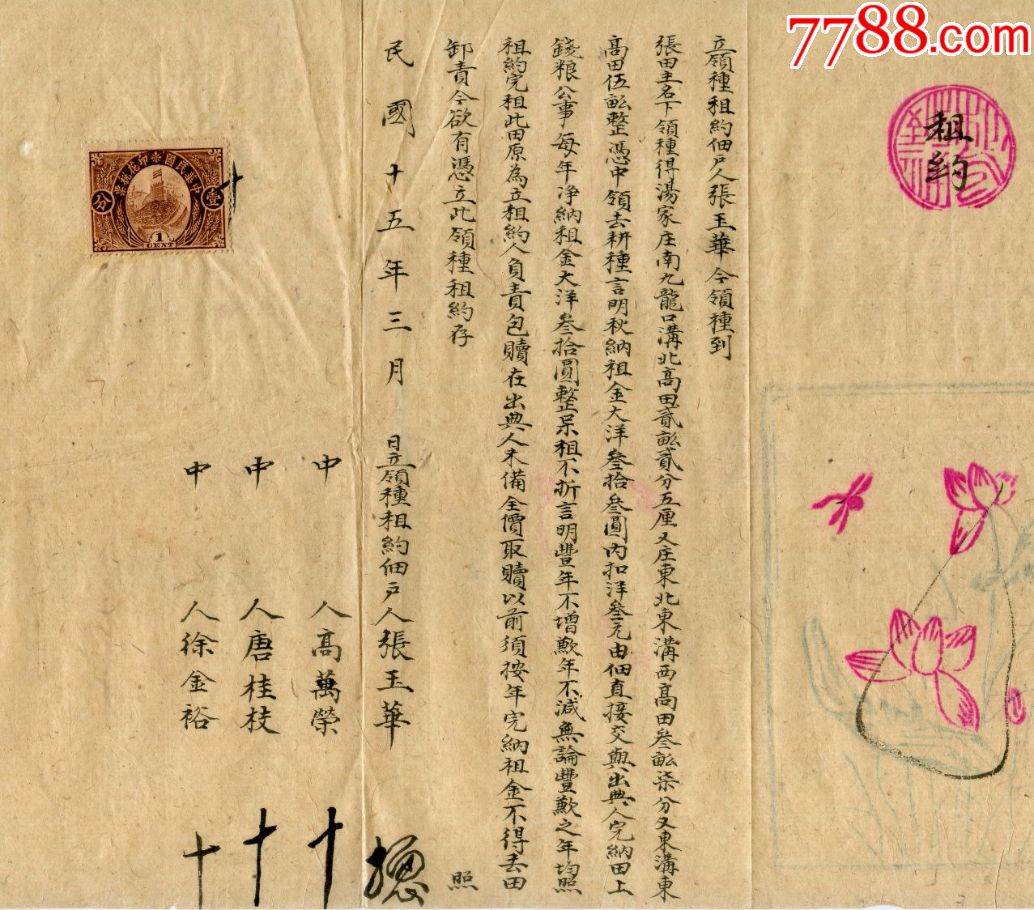 7788.com
租約
立領種租約佃戶人張玉華今領種到
張田主名下領種得湯家庄南九龍口溝北高田貳畝貳分五厘又庄東北東溝西高田叁畝柒分又東溝東
高田伍畝整憑中領去耕種言明秋納租金大洋叁拾叁圓內扣洋叁元由佃直接交與出典人完納田上
錢粮公事每年净納租金大洋叁拾圓整呆租不折言明豐年不增歉年不減無論豐歉之年均照
租約完租此田原為立租約人負責包贖在出典人未備全價取贖以前須按年完納租金不得丟田
卸責今欲有憑立此領種租約存
照
民國十五年三月 日立領種租約佃戶人張玉華
中人高萬榮 十
中人唐桂枝 十
中人徐金裕 十
中華民國印花稅票
壹分
1
CENT